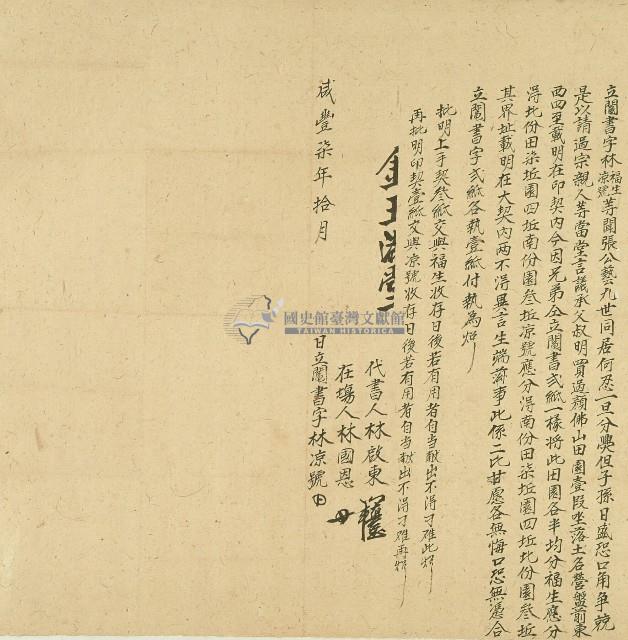 立鬮書字林福生凉號等聞張公藝九世同居何忍一旦分爨但子孫日盛恐口角爭競
是以請過宗親人等當堂言議承父叔明買過顏佛山田園壹段坐落土名營盤前東
西四至載明在印契內今因兄弟仝立鬮書弍紙一樣將此田園各半均分福生應分
得北份田柒坵園四坵南份園叁坵凉號應分得南份田柒坵園四坵北份園叁坵
其界址載明在大契內兩不得異言生端滋事此係二比甘愿各無悔口恐無憑合
立鬮書字弍紙各執壹紙付執為炤
批明上手契叁紙交與福生收存日後若有用者自當獻出不得刁难此炤
再批明印契壹紙交與凉號收存日後若有用者自當獻出不得刁难再炤
代書人林啟東
在塲人林國恩
咸豐柒年拾月 日立鬮書字林凉號
國史館臺灣文獻館
TAIWAN HISTORICA